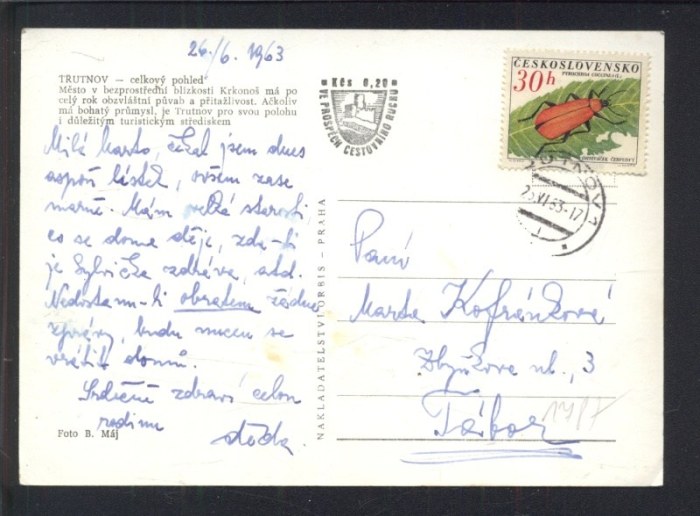 26./6. 1963
TRUTNOV — celkový pohled
Město v bezprostřední blízkosti Krkonoš má po
celý rok obzvláštní půvab a přitažlivost. Ačkoliv
má bohatý průmysl, je Trutnov pro svou polohu
i důležitým turistickým střediskem
Milá Marto, čekal jsem dnes
aspoň lístek, ovšem zase
marně. Mám velké starosti
co se doma děje, zda-li
je Sylvička zdráva, atd.
Nedostanu-li obratem žádné
zprávy, budu muset se
vrátit domů.
Srdečně zdraví celou
rodinu
děda.
Foto B. Máj
NAKLADATELSTVÍ ORBIS — PRAHA
Kčs 0,20
VE PROSPĚCH CESTOVNÍHO RUCHU
ČESKOSLOVENSKO
30h
TRUTNOV 1
Paní
Marta Kofránková
nb., 3
Tábor